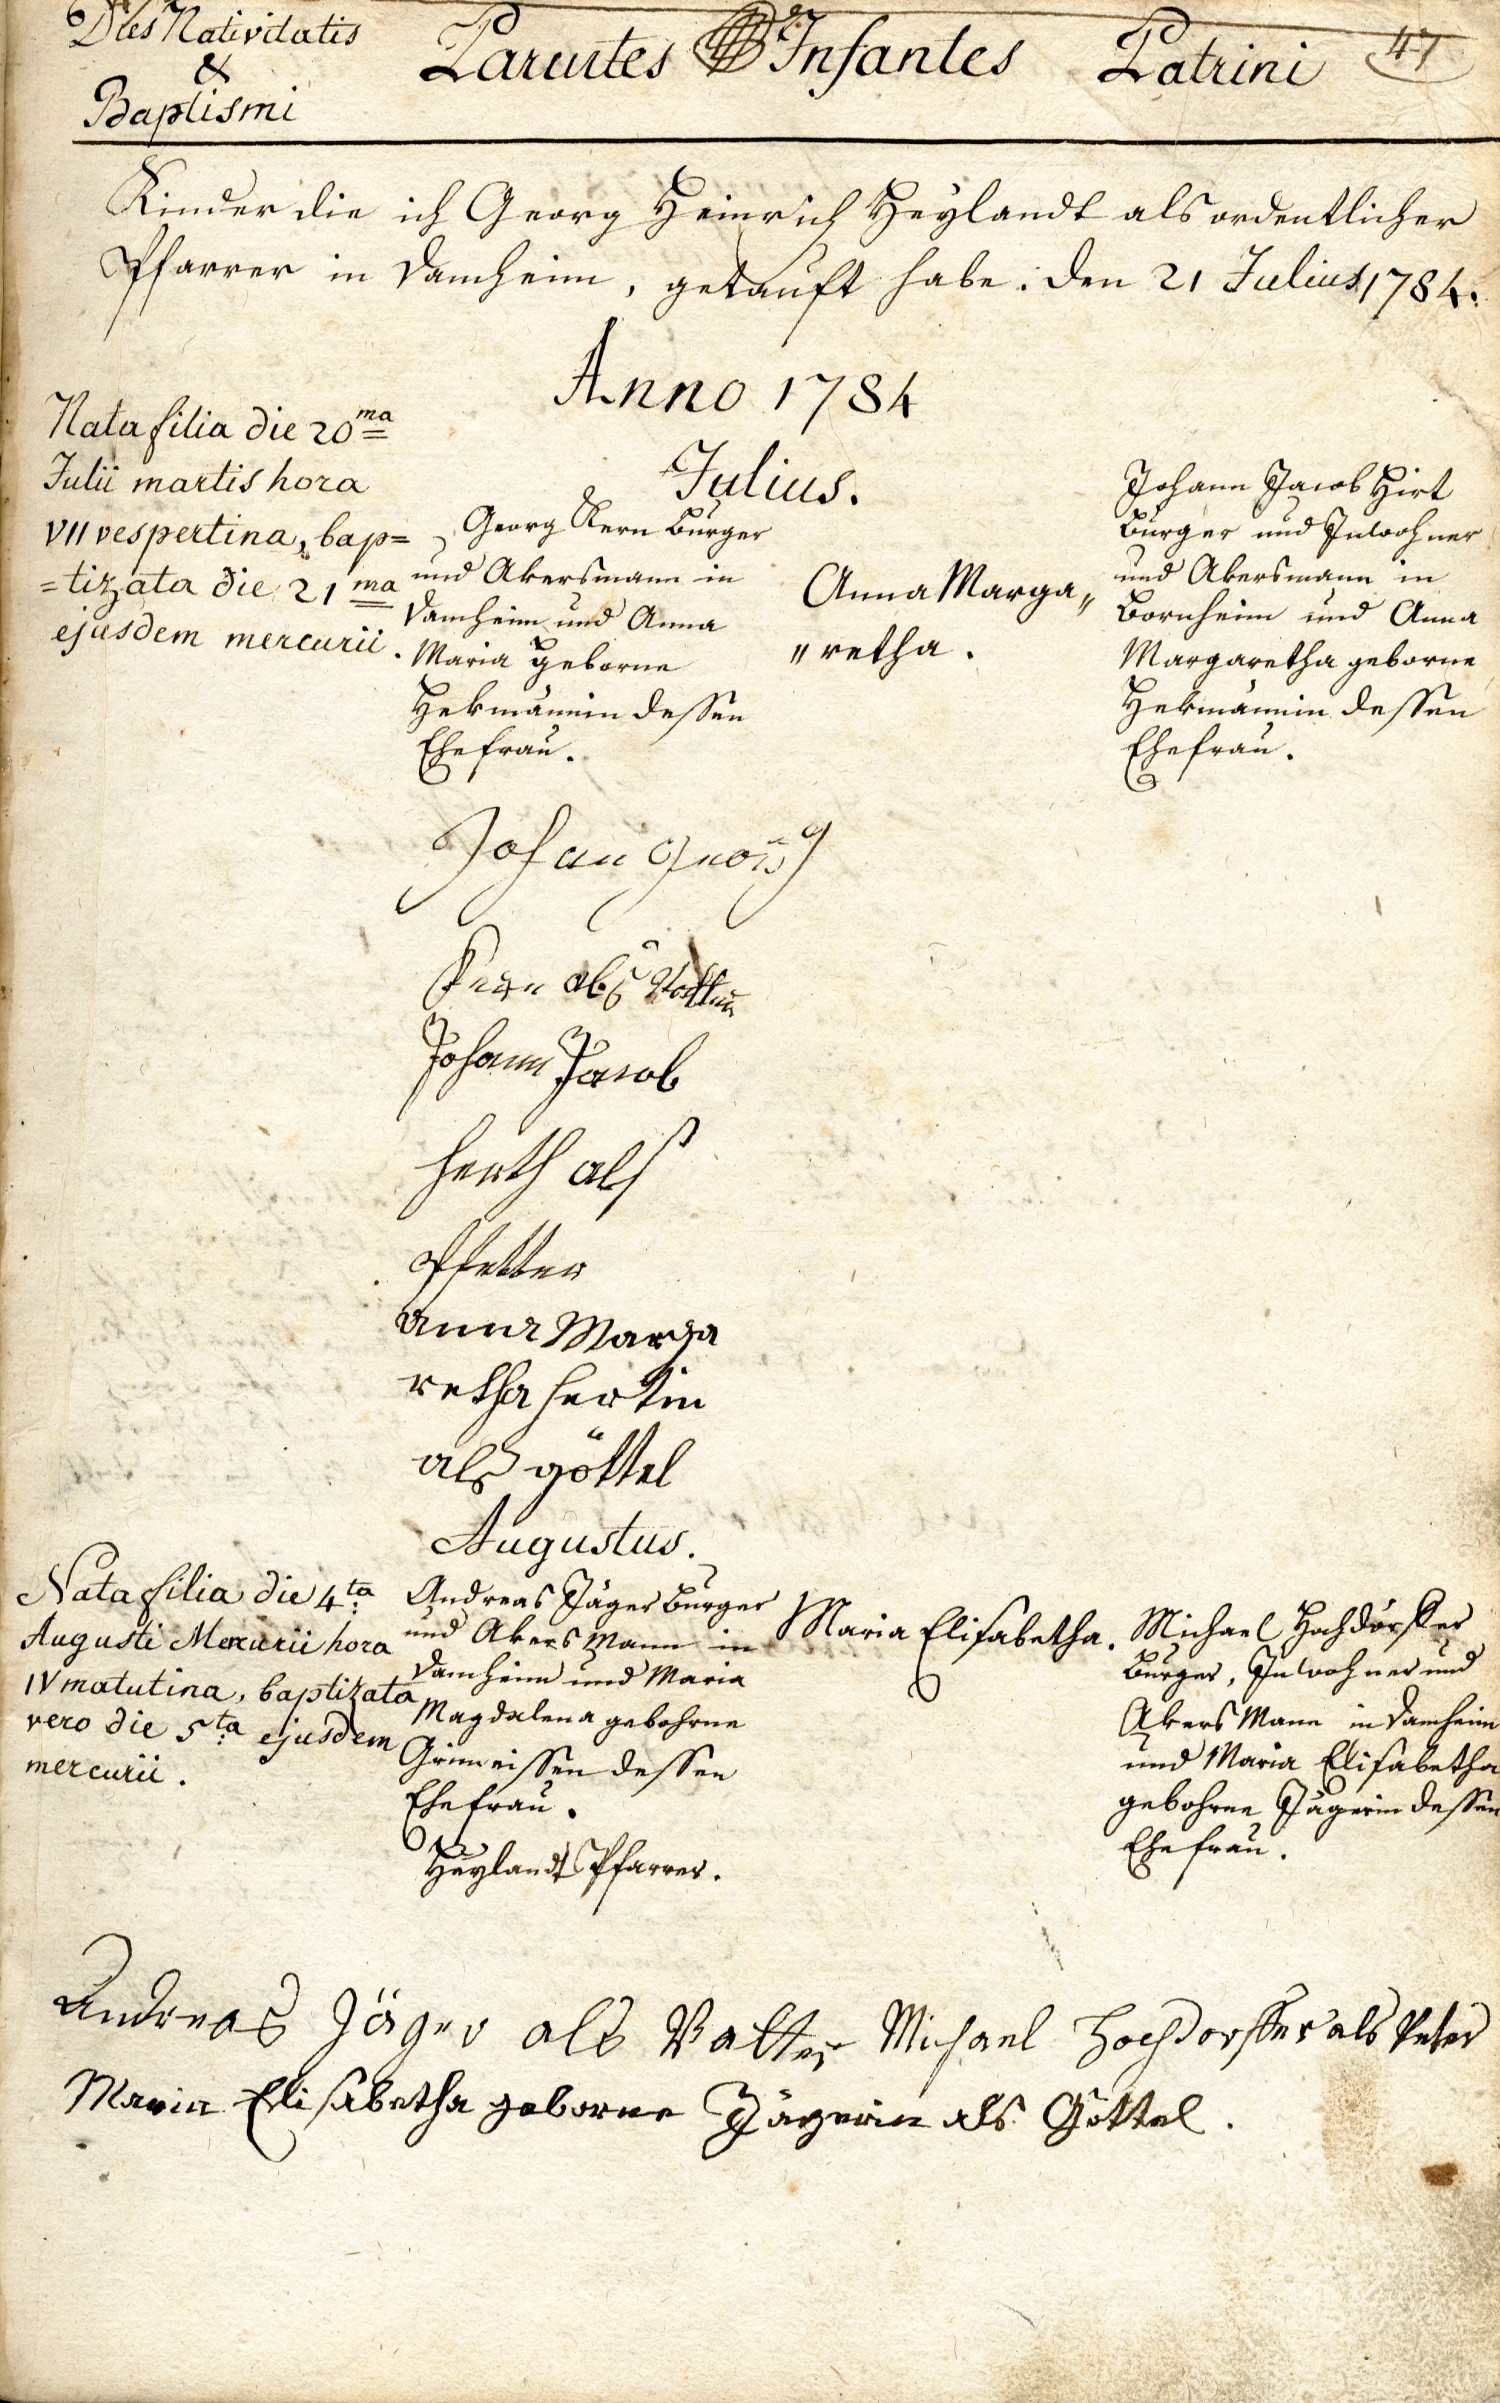 Dies Nativitatis
&
Baptismi
Parentes
Infantes
Patrini
47
Kinder die ich Georg Heinrich Heylandt als ordentlicher
Pfarrer in Damheim, getauft habe. den 21 Julius 1784.
Anno 1784
Julius.
Nata filia die 20ma
Julii martis hora
VII vespertina, bap=
=tizata die 21ma
ejusdem mercurii.
Georg Kern Burger
und Akersmann in
Damheim und Anna
Maria geborne
Hekmännin dessen
Ehefrau.
Anna Marga„
„retha.
Johann Jacob Hirt
Burger und Inwohner
und Akersmann in
Bornheim und Anna
Margaretha geborne
Hekmännin dessen
Ehefrau.
Johan Georg
Kern als Vatter
Johann Jacob
herth als
Pfetter
anna Marga
retha hertin
als göttel
Augustus.
Nata filia die 4ta
Augusti Mercurii hora
IV matutina, baptizata
vero die 5ta ejusdem
mercurii.
Andreas Jäger Burger
und Akers Mann in
Damheim und Maria
Magdalena gebohrne
Grimeissen dessen
Ehefrau.
Heylandt Pfarrer.
Maria Elisabetha.
Michael Hochdörffer
Burger, Inwohner und
Akers Mann in Damheim
und Maria Elisabetha
gebohrne Jägerin dessen
Ehefrau.
Andreas Jäger als Vatter Michael Hochdorffer als Peter
Maria Elisabetha geborne Jägerin als Göttel.